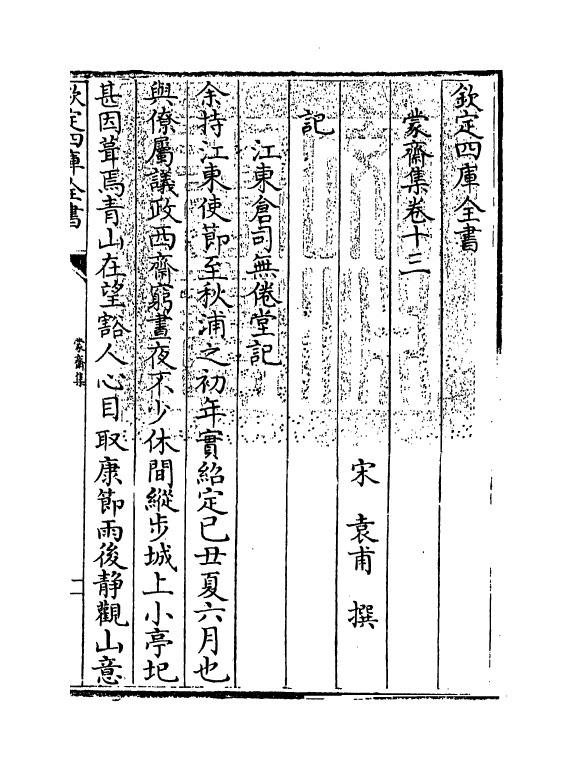 欽定四庫全書
蒙齋集卷十三
宋 袁甫 撰
記
江東倉司無倦堂記
余持江東使節至秋浦之初年實紹定己丑夏六月也
與僚屬議政西齋窮晝夜不少休間縱步城上小亭圮
甚因葺焉青山在望豁人心目取康節雨後静觀山意
欽定四庫全書
蒙齋集